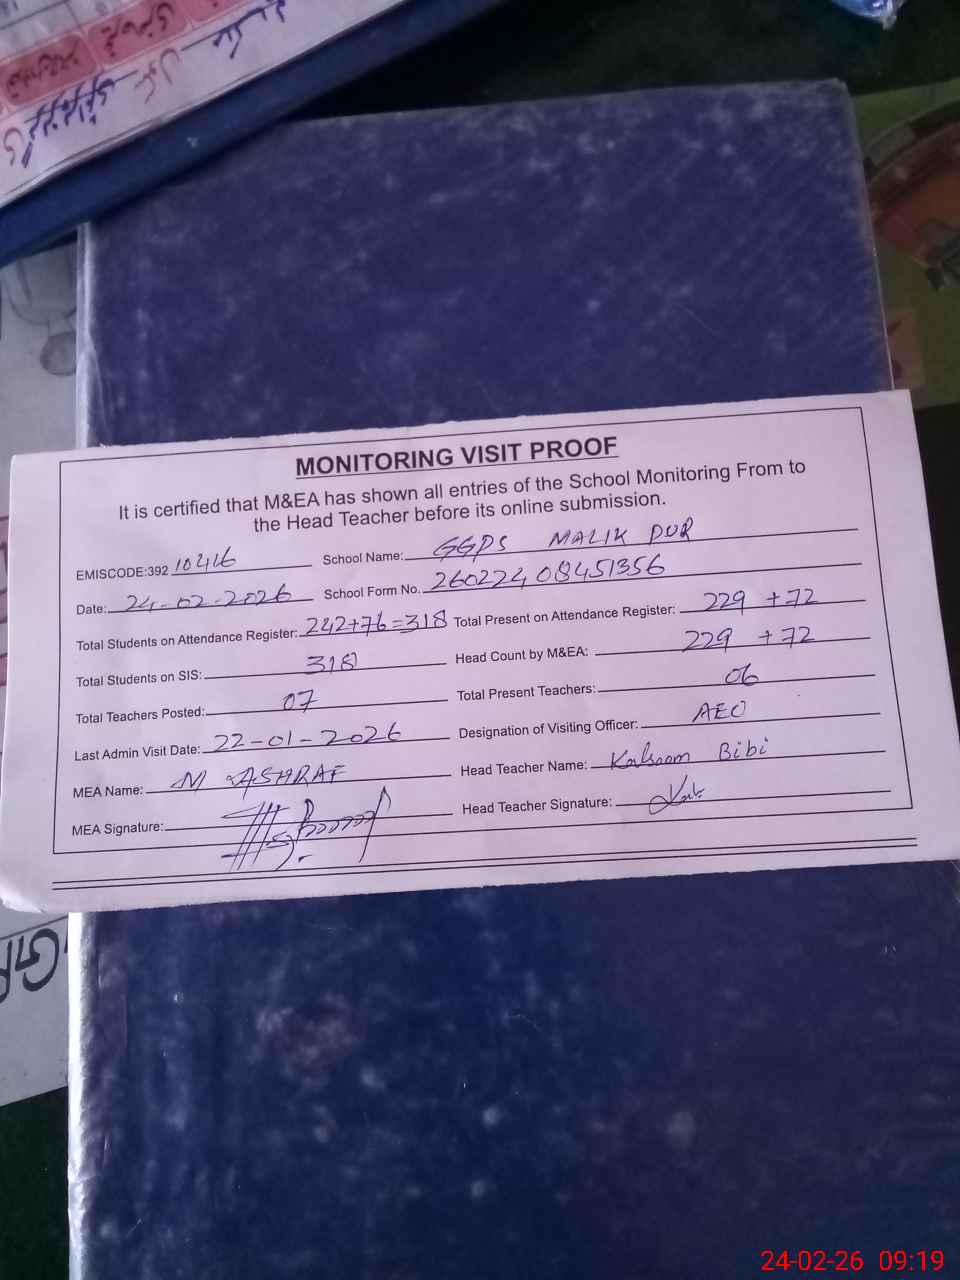 MONITORING VISIT PROOF
It is certified that M&EA has shown all entries of the School Monitoring From to
the Head Teacher before its online submission.
EMISCODE:392 10416 School Name: GGPS MALIK PUR
Date: 24-02-2026 School Form No. 26022408451356
Total Students on Attendance Register: 242+76=318 Total Present on Attendance Register: 229 +72
Total Students on SIS: 318 Head Count by M&EA: 229 +72
Total Teachers Posted: 07 Total Present Teachers: 06
Last Admin Visit Date: 22-01-2026 Designation of Visiting Officer: AEO
MEA Name: M ASHRAF Head Teacher Name: Kalsoom Bibi
MEA Signature: Head Teacher Signature:
24-02-26 09:19